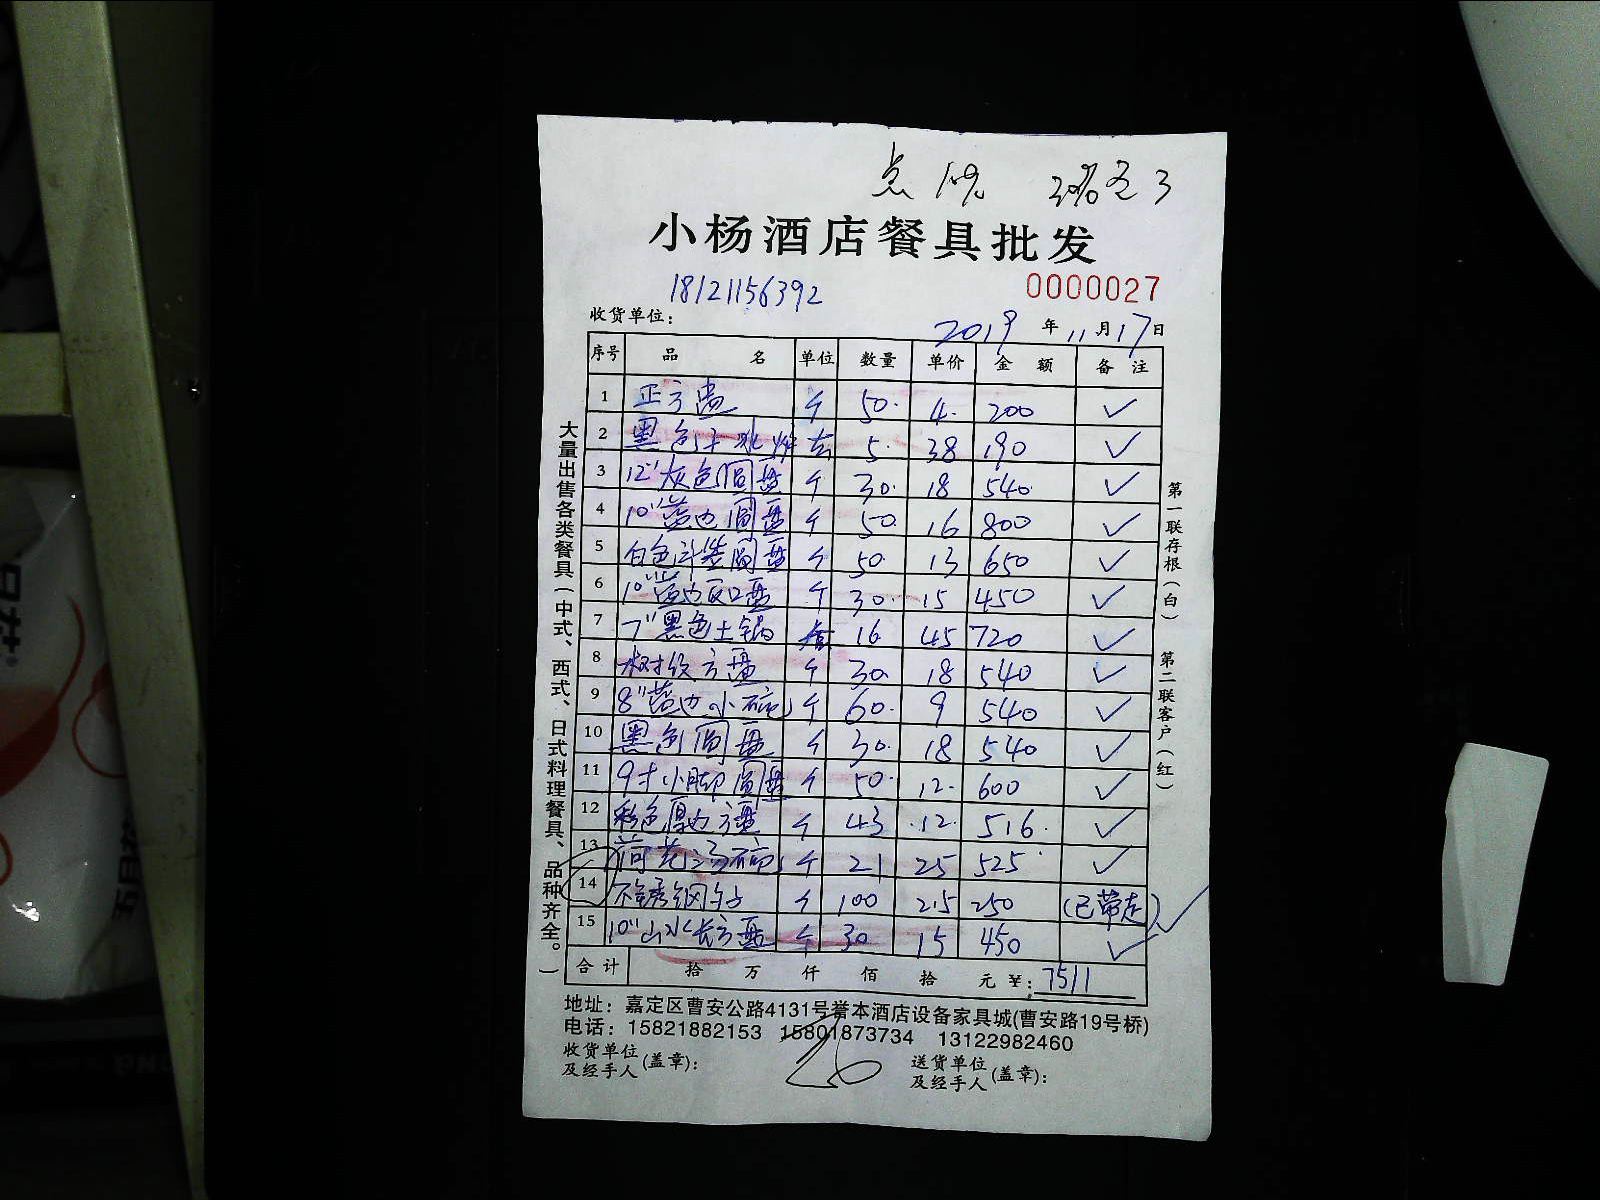 小杨酒店餐具批发
18121156392 0000027
收货单位： 2019 年 11 月 17 日
序号 品 名 单位 数量 单价 金 额 备 注
1 正方 个 50. 4. 200 ✓
2 黑色 5. 38 190 ✓
3 12"灰色圆盘 个 30. 18 540 ✓
4 10"蓝边圆盘 个 50 16 800 ✓
5 白色斗笠圆盘 个 50 13 650 ✓
6 10"蓝边反口盘 个 30. 15 450 ✓
7 7"黑色土锅 套 16 45 720 ✓
8 树纹方盘 个 30 18 540 ✓
9 8"蓝边小碗 个 60. 9 540 ✓
10 黑色圆盘 个 30. 18 540 ✓
11 9寸小脚圆盘 个 50. 12. 600 ✓
12 彩色厚边方盘 个 43 12. 516. ✓
13 荷花汤碗 个 21 25 525 ✓
14 不锈钢 个 100 2.5 250 (已带走) ✓
15 10"山水长方盘 个 30 15 450 ✓
合计 拾 万 仟 佰 拾 元 ¥: 7511
地址：嘉定区曹安公路4131号誉本酒店设备家具城(曹安路19号桥)
电话：15821882153 15801873734 13122982460
收货单位
及经手人 (盖章)：
送货单位
及经手人 (盖章)：
大量出售各类餐具（中式、西式、日式料理餐具、品种齐全。）
第一联存根（白） 第二联客户（红）